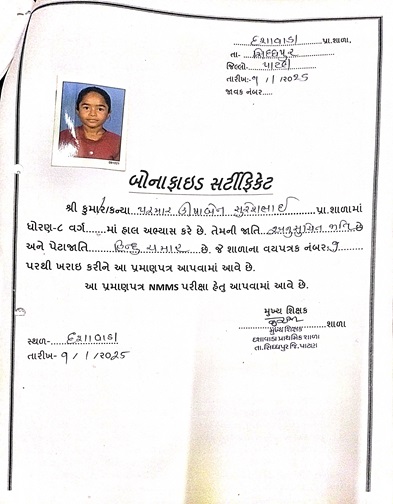 દશાવાડા પ્રા.શાળા,
તા- સિધ્ધપુર
જિલ્લો- પાટણ
તારીખ:-૧ / ૧ /૨૦25
જાવક નંબર.....
બોનાફાઇડ સર્ટીફિકેટ
શ્રી કુમાર/કન્યા પરમાર સુરેશભાઈ પ્રા.શાળામાં
ધોરણ-૮ વર્ગ......માં હાલ અભ્યાસ કરે છે. તેમની જાતિ અનુસુચિત જાતિ છે
અને પેટાજાતિ હિન્દુ ચમાર છે. જે શાળાના વયપત્રક નંબર:
પરથી ખરાઇ કરીને આ પ્રમાણપત્ર આપવામાં આવે છે.
આ પ્રમાણપત્ર NMMS પરીક્ષા હેતુ આપવામાં આવે છે.
મુખ્ય શિક્ષક
શાળા
મુખ્ય શિક્ષક
દશાવાડા પ્રાથમિક શાળા
તા.સિધ્ધપુર જિ.પાટણ
સ્થળ- દશાવાડા
તારીખ- ૧ / ૧ /૨૦25